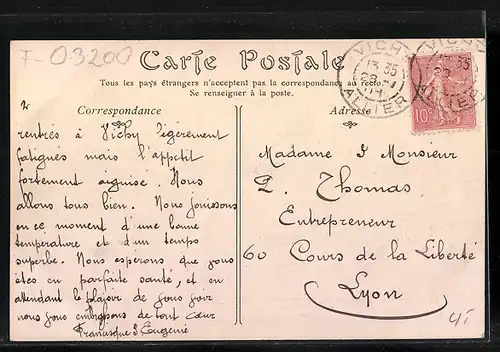 F-03200
Carte Postale
Tous les pays étrangers n'acceptent pas la correspondance au recto
Se renseigner à la poste.
Correspondance
Adresse
VICHY
13 35
28
ALLIER
VICHY
35
28
ALLIER
10
2
rentrés à Vichy légèrement
fatigués mais l'appétit
fortement aiguisé. Nous
allons tous bien. Nous jouissons
en ce moment d'une bonne
température et d'un temps
superbe. Nous espérons que vous
êtes en parfaite santé, et en
attendant le plaisir de vous voir
nous vous embrassons de tout cœur
Francisque & Eugénie
Madame & Monsieur
P. Thomas
Entrepreneur
60 Cours de la Liberté
Lyon